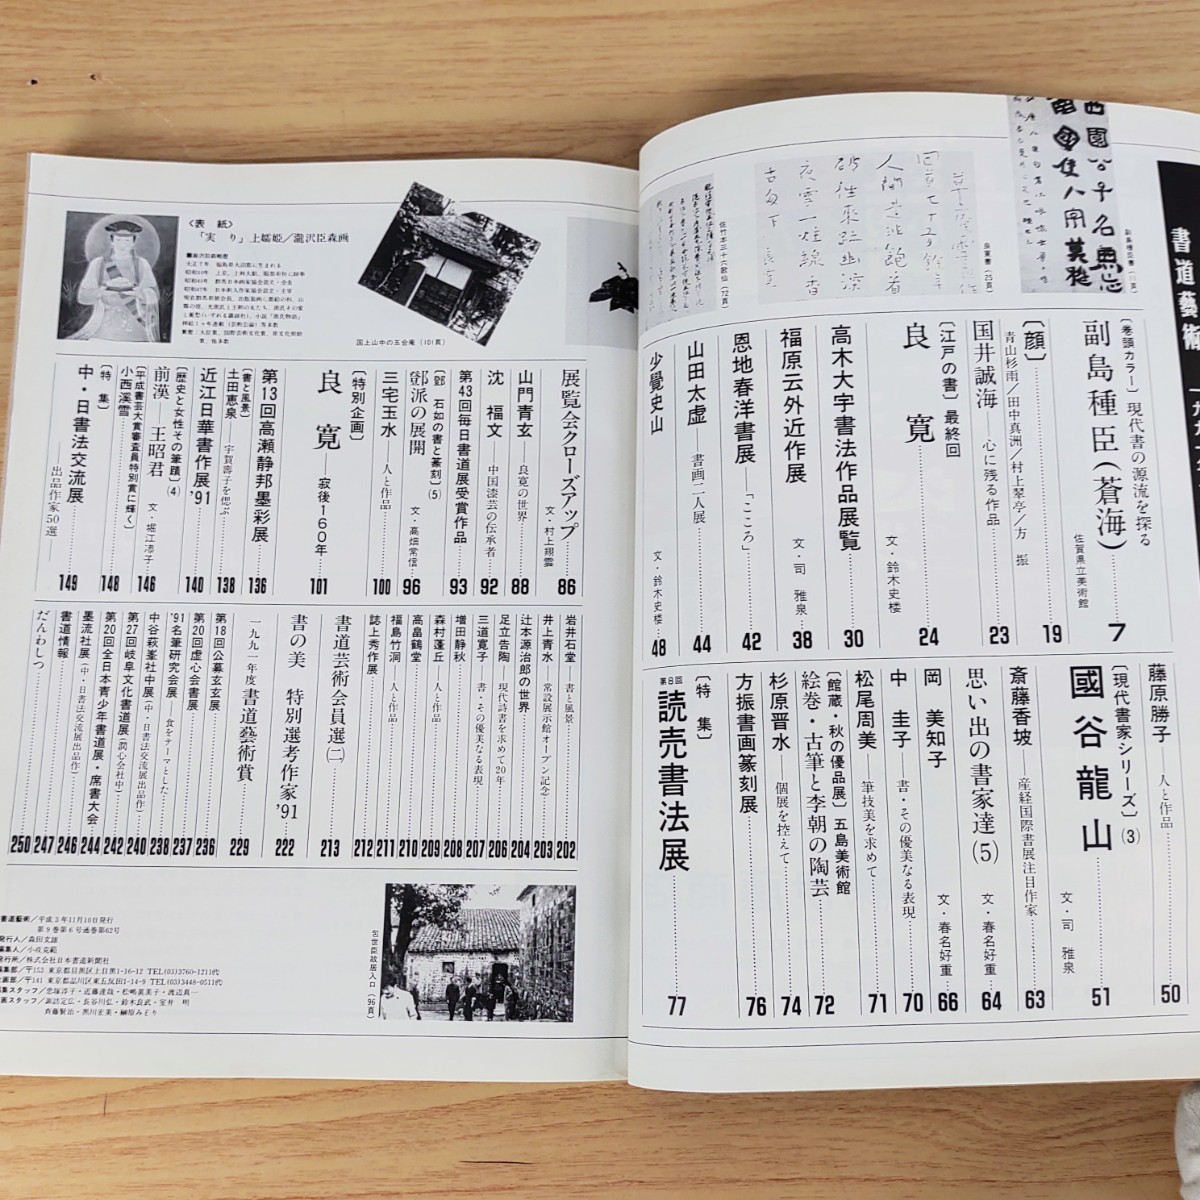 書道藝術
副島種臣書(11頁)
良寛書(25頁)
佐竹本三十六歌仙(72頁)
〔巻頭カラー〕現代書の源流を探る
副島種臣(蒼海)
佐賀県立美術館
7
〔顔〕
青山杉雨/田中真洲/村上翠亭/方 振
19
国井誠海
心に残る作品
23
〔江戸の書〕最終回
良 寛
文・鈴木史楼
24
高木大宇書法作品展覧
30
福原云外近作展
文・司 雅泉
38
恩地春洋書展
「こころ」
42
山田太虚
書画二人展
44
少覺史山
文・鈴木史楼
48
藤原勝子
人と作品
50
〔現代書家シリーズ〕(3)
國谷龍山
文・司 雅泉
51
斎藤香坡
産経国際書展注目作家
63
思い出の書家達(5)
文・春名好重
64
岡 美知子
文・春名好重
66
中 圭子
書・その優美なる表現
70
松尾周美
筆技美を求めて
71
〔館蔵・秋の優品展〕五島美術館
絵巻・古筆と李朝の陶芸
72
杉原晋水
個展を控えて
74
方振書画篆刻展
76
〔特 集〕
第8回 読売書法展
77
〈表 紙〉
「実 り」上嬬姫/瀧沢臣森画
国上山中の五合庵(101頁)
展覧会クローズアップ
文・村上翔雲
86
山門青玄
良寛の世界
88
沈 福文
中国漆芸の伝承者
92
第43回毎日書道展受賞作品
93
〔鄧石如の書と篆刻〕(5)
鄧派の展開
文・高畑常信
96
三宅玉水
人と作品
100
〔特別企画〕
良 寛
寂後160年
101
第13回高瀬静邦墨彩展
136
〔書と風景〕
土田恵泉
宇賀寿子を思ぶ
138
近江日華書作展'91
140
〔歴史と女性その筆蹟〕(4)
前漢 王昭君
文・堀江恭子
146
〔平成書芸大賞審査員特別賞に輝く〕
小西溪雪
148
〔特 集〕
中・日書法交流展
出品作家50選
149
岩井石堂
書と風景
202
井上青水
常設展示館オープン記念
203
辻本源治郎の世界
204
足立告陶
現代詩書を求めて20年
206
三道寛子
書・その優美なる表現
207
増田静秋
208
森村蓬丘
人と作品
209
高畠鶴堂
210
福島竹洞
人と作品
211
誌上秀作展
212
書道芸術会員選(二)
213
書の美 特別選考作家'91
222
一九九一年度書道藝術賞
229
第18回公募玄玄展
236
第20回虚心会書展
237
'91名筆研究会展
食をテーマとした
238
中谷萩峯社中展(中・日書法交流展出品作)
240
第27回岐阜文化書道展(潤心会社中)
242
第20回全日本青少年書道展・席書大会
244
墨流社展(中・日書法交流展出品作)
246
書道情報
247
だんわしつ
250
包世臣故居入口(96頁)
書道藝術/平成3年11月10日発行
第9巻第6号通巻第62号
発行人/森田文雄
編集人/小坂克範
発行所/株式会社日本書道新聞社
編集部/〒153 東京都目黒区上目黒1-16-12 TEL(03)3760-1211代
企画部/〒141 東京都品川区東五反田1-14-9 TEL(03)3448-0511代